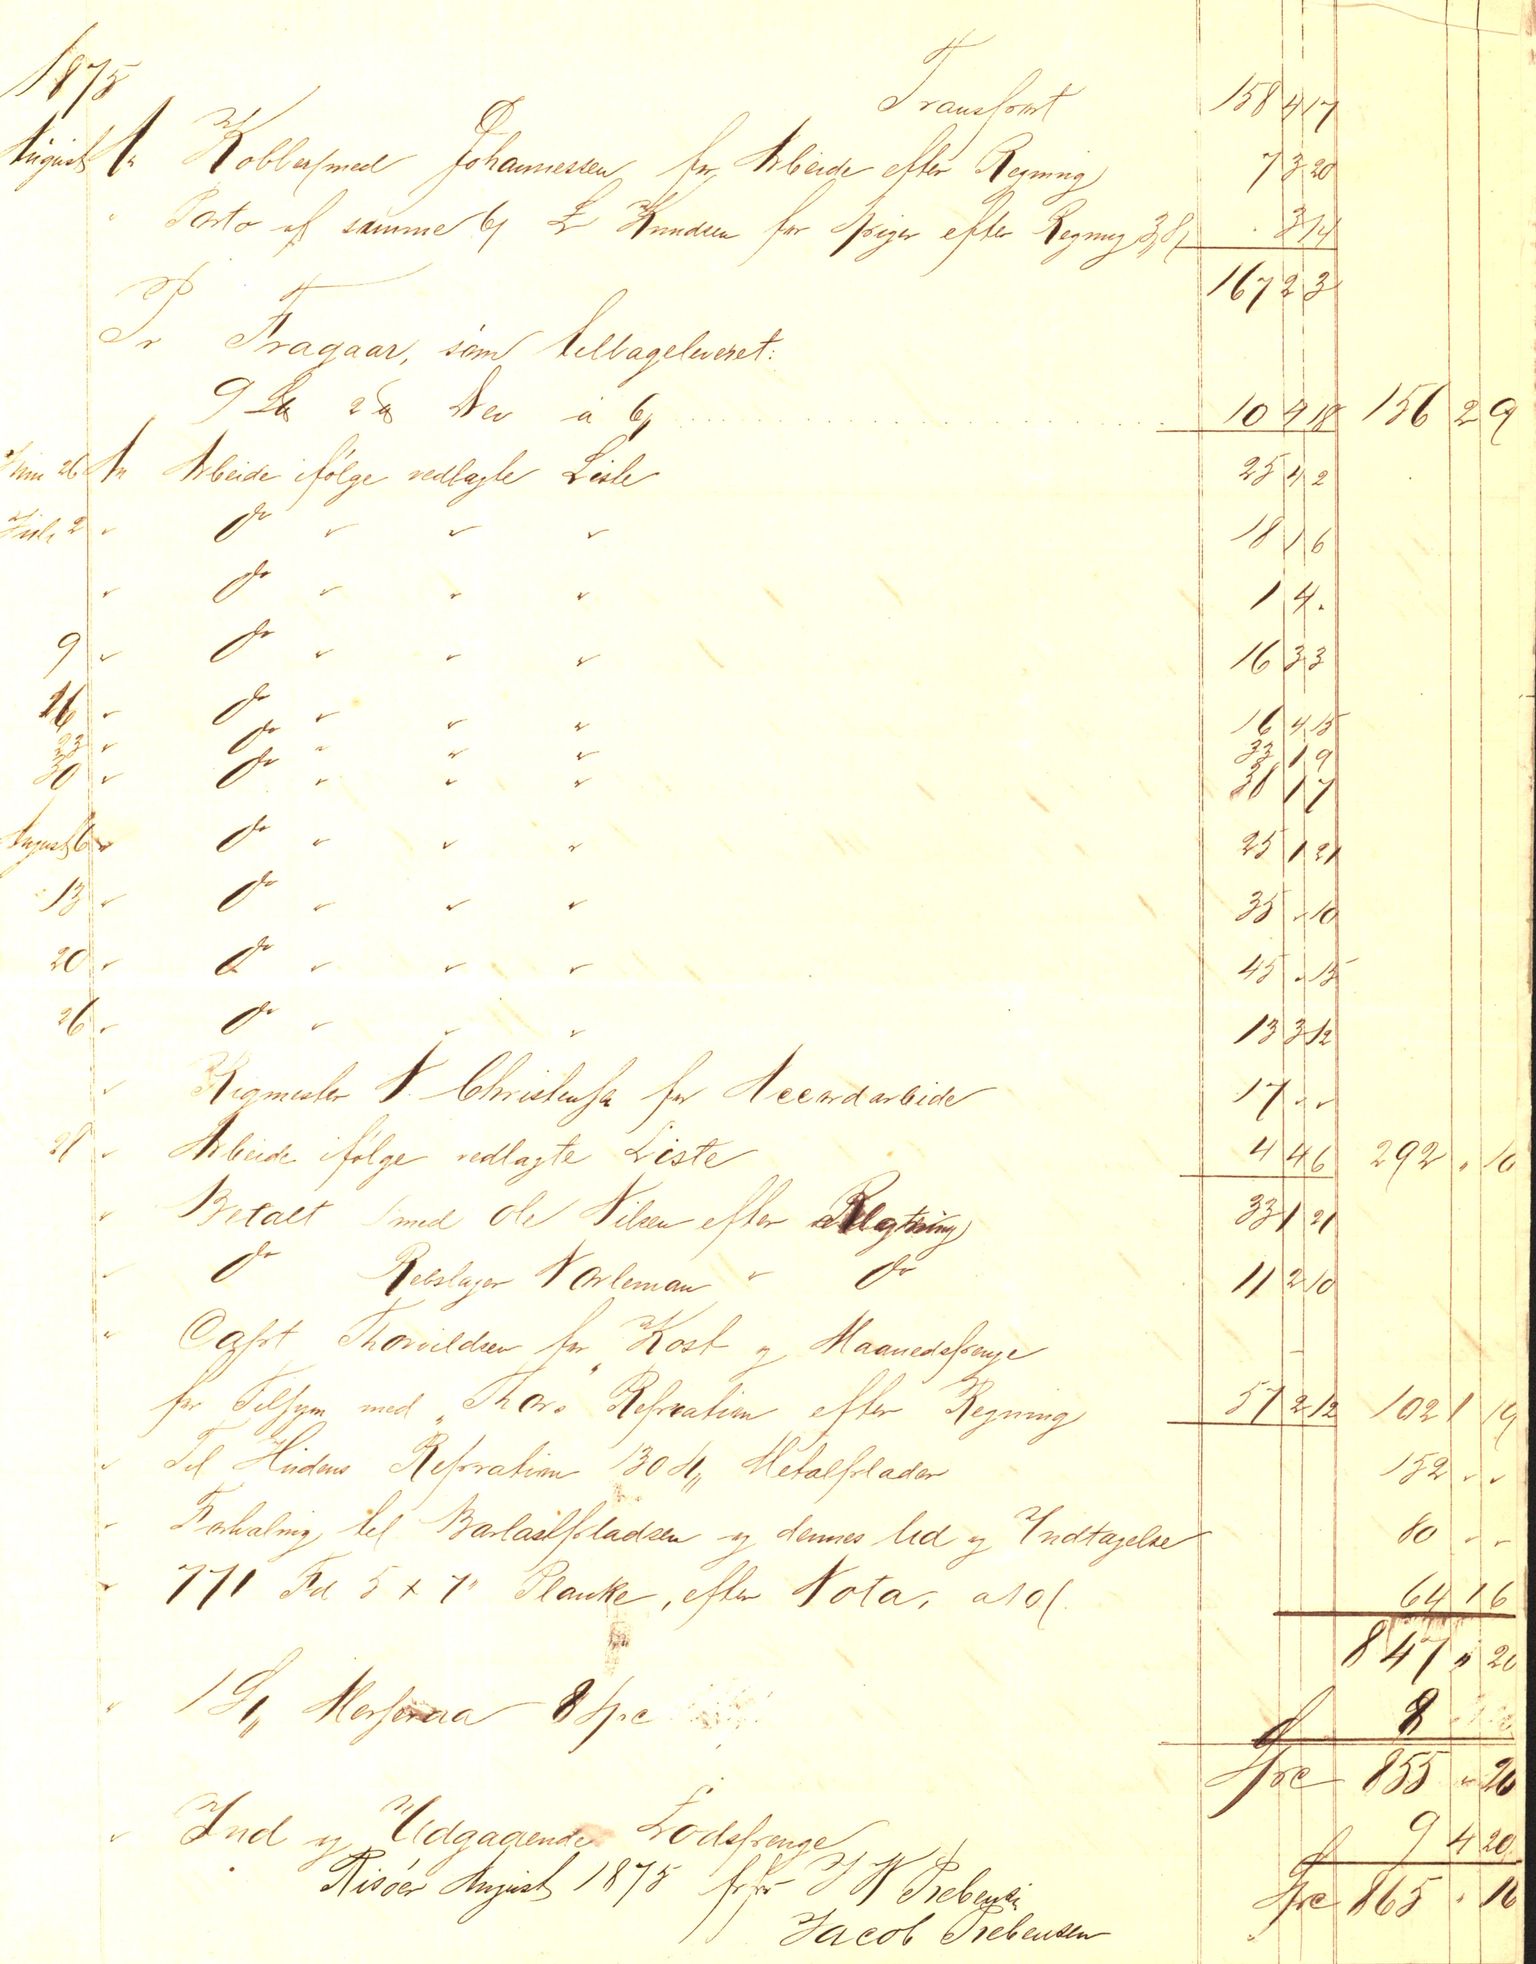 1875
Transport 158 4 17
August An Kobbersmed Johannessen for Arbeide efter Regning 7 3 20
" Porto af samme og L Knudsen for Spiger efter Regning " 3 14
167 2 3
Pr Fragaar, som tilbageleveret:
9 à 10 4 18 156 2 9
Juni 26 An Arbeide ifølge vedlagte Liste 25 4 2
Juli 2 " do " " " 18 1 6
" do " " " 1 4 "
9 " do " " " 16 3 3
16 " do " " " 16 4 15
23 " do " " " 33 1 9
30 " do " " " 38 1 7
August 6 " do " " " 25 1 21
" 13 " do " " " 35 " 10
20 " do " " " 45 " 15
26 " do " " " 13 3 12
" Rigmester N. Christensen for Accordarbeide 17 " "
28 " Arbeide ifølge vedlagte Liste 4 4 6 292 " 10
" Betalt Smed Ole Nilsen efter Regning 33 1 21
" do Rebslager Norleman " do 11 2 10
" Capt Thorvildsen for Kost og Maanedspenge
for Tilsyn med "Thors" Repration efter Regning 57 2 12 102 1 19
" Til Hudens Repration 130 Metalplader 152 " "
" Forhaling til Barlastpladsen og dennes Ud og Indtagelse 80 " "
" 771 Fd 5 x 7" Planke, efter Nota, a 10 64 1 6
847 " 20
" 1 Merseraa 8 Spc 8
Spc 855 " 20
" Ind og Udgaaende Lodspenge 9 4 20
Risöer August 1875 Spc 865 " 16
J W Prebensen
Jacob Prebensen